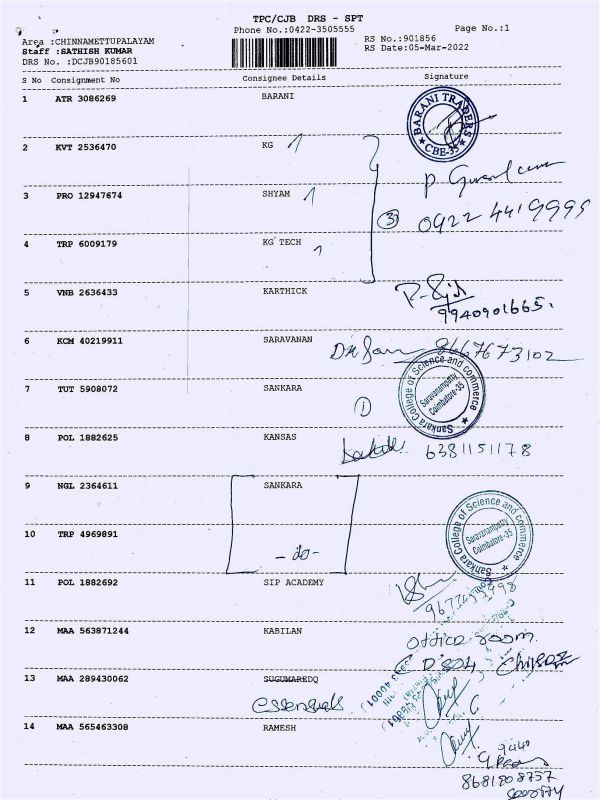 TPC/CJB DRS - SPT
Phone No.:0422-3505555
Page No.:1
Area :CHINNAMETTUPALAYAM
Staff :SATHISH KUMAR
DRS No. :DCJB90185601
RS No.:901856
RS Date:05-Mar-2022
S No Consignment No Consignee Details Signature
1 ATR 3086269 BARANI
BARANI TRADERS
CBE-35
2 KVT 2536470 KG
3 PRO 12947674 SHYAM
3 0422 4419995
4 TRP 6009179 KG TECH
5 VNB 2636433 KARTHICK
9940901665.
6 KCM 40219911 SARAVANAN
8667673102
7 TUT 5908072 SANKARA
1
Sankara College of Science and Commerce
Saravanampatty
Coimbatore-35
8 POL 1882625 KANSAS
6381151178
9 NGL 2364611 SANKARA
Sankara College of Science and Commerce
Saravanampatty
Coimbatore-35
10 TRP 4969891
- do -
11 POL 1882692 SIP ACADEMY
12 MAA 563871244 KABILAN
Office room
13 MAA 289430062 SUGUMAREDQ
essensuals
14 MAA 565463308 RAMESH